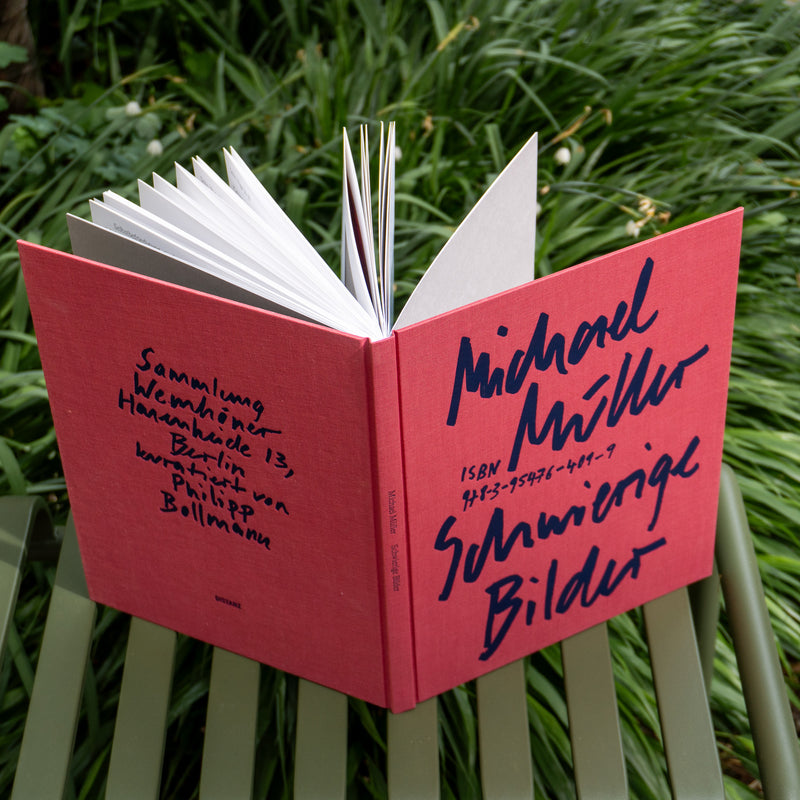 Sammlung
Wemhöner
Hasenheide 13,
Berlin
kuratiert von
Philipp
Bollmann
DISTANZ
Michael Müller Schwierige Bilder
Michael
Müller
ISBN
978-3-95476-409-9
Schwierige
Bilder